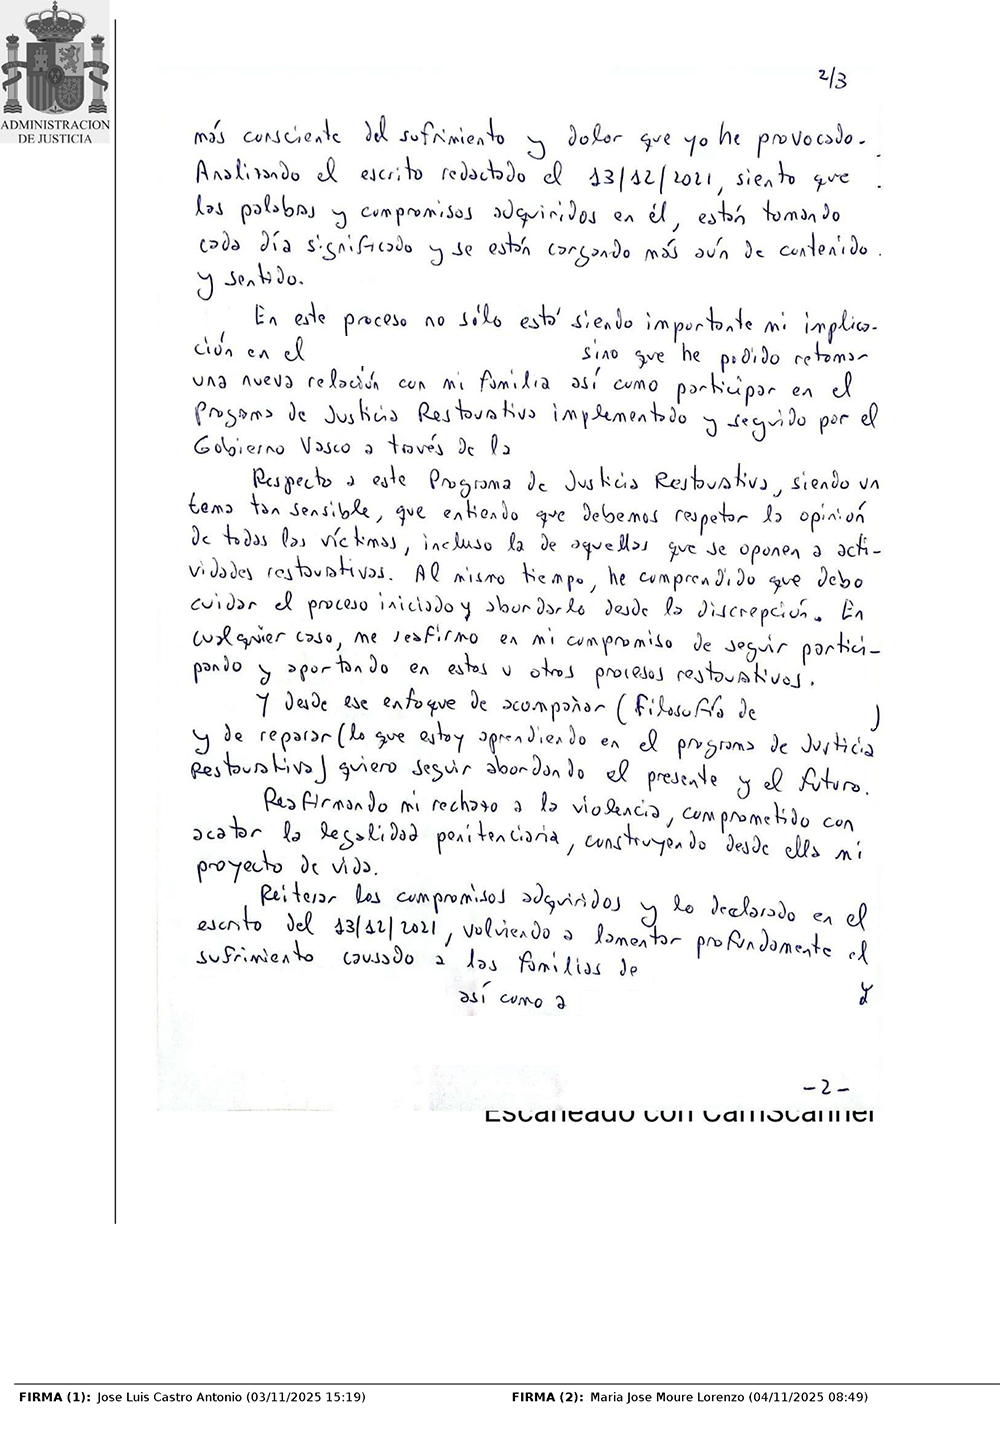 ADMINISTRACION
DE JUSTICIA
2/3
más consciente del sufrimiento y dolor que yo he provocado.
Analizando el escrito redactado el 13/12/2021, siento que
las palabras y compromisos adquiridos en él, están tomando
cada día significado y se están cargando más aún de contenido
y sentido.
En este proceso no sólo está siendo importante mi implica-
ción en el sino que he podido retomar
una nueva relación con mi familia así como participar en el
Programa de Justicia Restaurativa implementado y seguido por el
Gobierno Vasco a través de la
Respecto a este Programa de Justicia Restaurativa, siendo un
tema tan sensible, que entiendo que debemos respetar la opinión
de todas las víctimas, incluso la de aquellas que se oponen a acti-
vidades restaurativas. Al mismo tiempo, he comprendido que debo
cuidar el proceso iniciado y abordarlo desde la discrepción. En
cualquier caso, me reafirmo en mi compromiso de seguir partici-
pando y aportando en estos u otros procesos restaurativos.
Y desde ese enfoque de acompañar (Filosofía de )
y de reparar (lo que estoy aprendiendo en el programa de Justicia
Restaurativa) quiero seguir abordando el presente y el futuro.
Reafirmando mi rechazo a la violencia, comprometido con
acatar la legalidad penitenciaria, construyendo desde ella mi
proyecto de vida.
Reiterar los compromisos adquiridos y lo declarado en el
escrito del 13/12/2021, volviendo a lamentar profundamente el
sufrimiento causado a las familias de
así como a y
-2-
Escaneado con CamScanner
FIRMA (1): Jose Luis Castro Antonio (03/11/2025 15:19) FIRMA (2): Maria Jose Moure Lorenzo (04/11/2025 08:49)